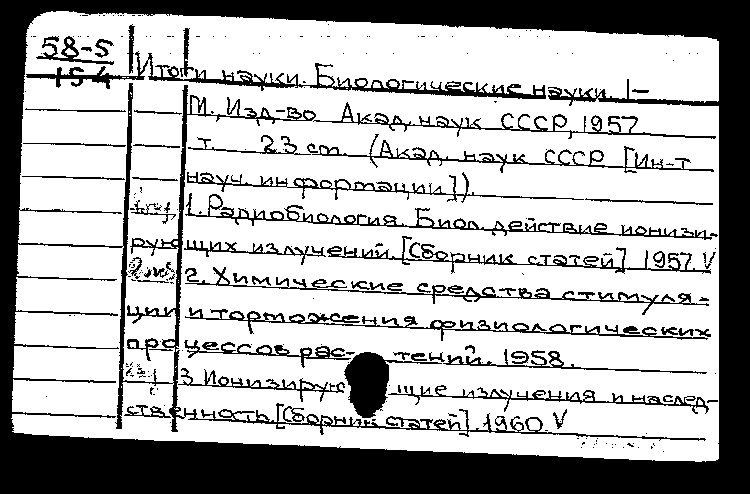 58-5
154
Итоги науки. Биологические науки. 1-
М., Изд-во Акад. наук СССР, 1957
т. 23 cm. (Акад. наук СССР [Ин-т
науч. информации]).
1. Радиобиология. Биол. действие ионизи-
рующих излучений. [Сборник статей] 1957. V
2. Химические средства стимуля-
ции и торможения физиологических
процессов рас- тений. 1958.
3 Ионизирую щие излучения и наслед-
ственность [Сборник статей]. 1960. V